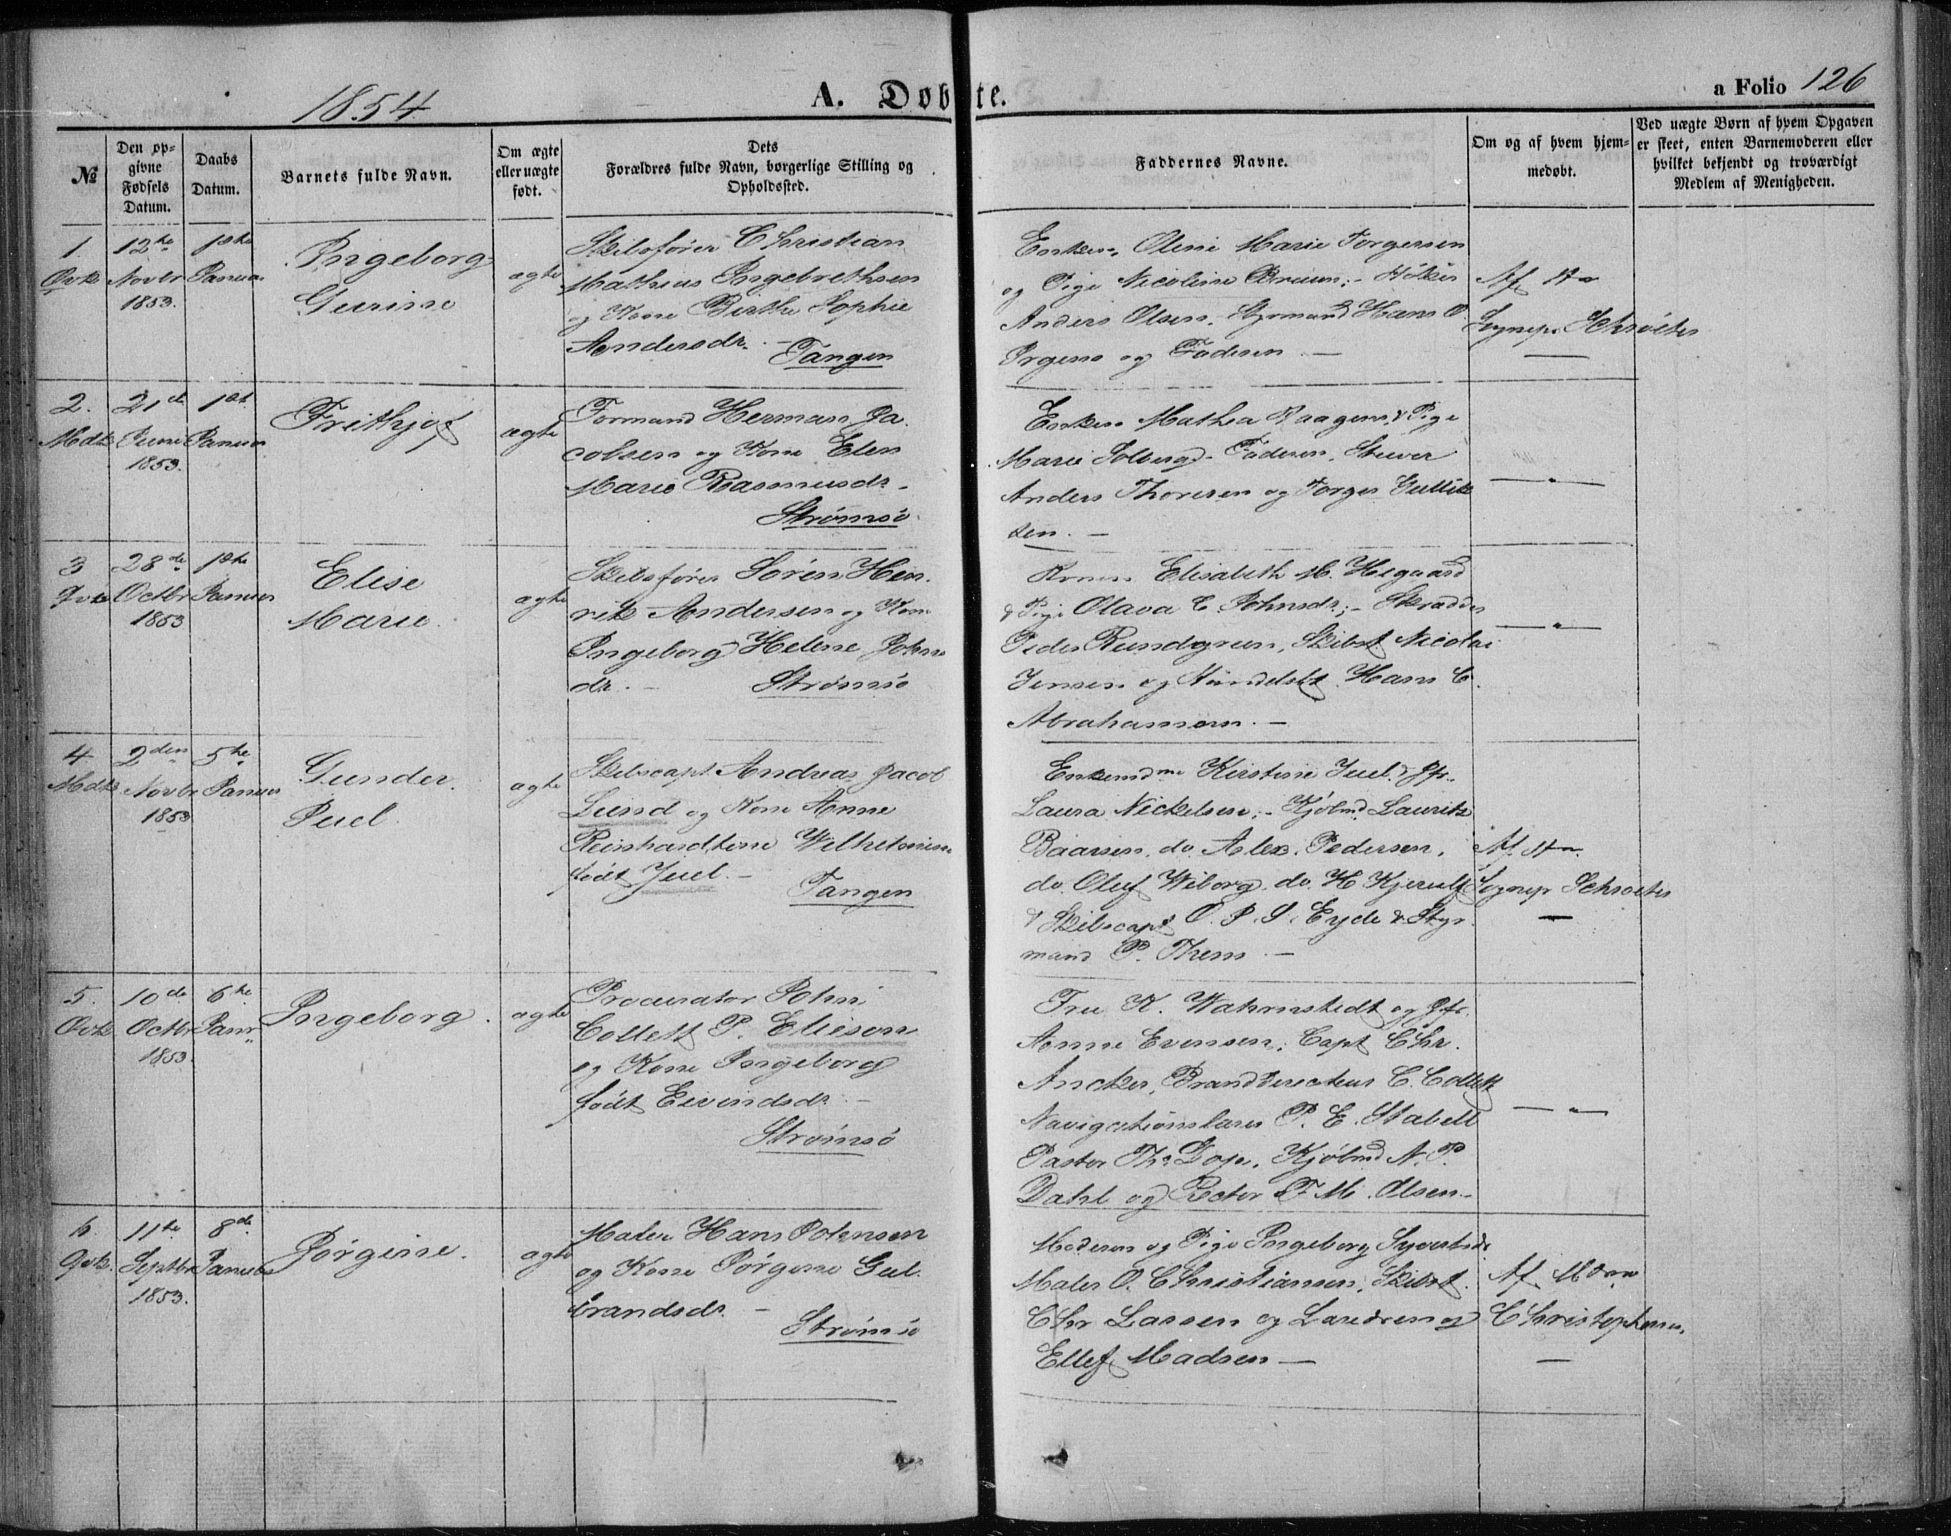 1854
A. Døbte.
a Folio 126
№
Den op-
givne
Fødsels
Datum.
Daabs
Datum.
Barnets fulde Navn.
Om ægte
eller uægte
født.
Dets
Forældres fulde Navn, borgerlige Stilling og
Opholdssted.
Faddernes Navne.
Om og af hvem hjem-
medøbt.
Ved uægte Børn af hvem Opgaven
er skeet, enten Barnemoderen eller
hvilket bekjendt og troværdigt
Medlem af Menigheden.
1.
12te
Novbr
1853.
1ste
Januar
Ingeborg
Gurine
ægte
Skibsfører Christian
Mathias Ingebrethsen
og Kone Birthe Sophie
Andersdr. -
Tangen
Enken Oline Marie Torgersen
og Pige Nicoline Bruun; -
Anders Olsen, Styrmand Hans O
Ørgens og Faderen. -
Af
Sognepr Schröeter
2.
21de
Juni
1853.
1ste
Januar
Frithjof
ægte
Formand Herman Ja-
cobsen og Kone Elen
Marie Rasmusdr. -
Strømsø.
Enken Mathea Kaagens & Pige
Marie Solberg - Faderen, Stuver
Anders Thoresen og Torger Gullik
sen. -
— " —
3
28de
Octbr
1853
1ste
Januar
Elise
Marie.
ægte
Skibsfører Sören Hen-
rik Andersen og Kone
Ingeborg Helene John
dr. -
Strømsø
Konen Elisabeth M. Hegaard
& Pige Olava E. Johnsdr; - Skrædder
Peder Rundgreen, Skibst Nicolai
Jensen og Handelsbt. Hans C.
Abrahamsen. -
— " —
4
2den
Novbr
1853
5te
Januar
Gunder
Juel.
ægte
Skibscapt Andreas Jacob
Lund og Kone Anne
Reinhardtine Wilhelmine
födt Juel. -
Tangen
Enkemdme Kirstine Juel & Jfr.
Laura Nickelsen; - Kjöbmd. Lauritz
Baarsen, do. Alex. Pedersen,
do. Oluf Wiborg, do. H. Kjerulf
& Skibscapt O. P. S. Eyde & Styr
mand P. Them. -
Af
Sognepr Schroeter
—
5.
10de
Octbr
1853.
6te
Janr
Ingeborg.
ægte
Procurator John
Collett P. Elieson
og Kone Ingeborg
födt Eivendsdr. -
Strømsø
Fru K. Wahrnstedt og Jfr.
Nonne Evensen; Capt Chr.
Ancker, Branddirecteur C. Collett
Navigationslærer P. E. Stabell
Pastor Ths Dop, Kjöbmd N. P.
Dahl og Rector F. M. Olsen -
— " —
6.
11te
Septbr
1853.
8de
Januar
Jørgine.
ægte
Maler Hans Johnsen
og Kone Jørgine Gul-
brandsdr. -
Strømsø
Moderen og Pige Ingeborg Syvertsdr
Maler O. Christiansen, Skibst.
Chr Lassen og Laredreng
Ellef Madsen —
Af Mdm
Christophersen.
—